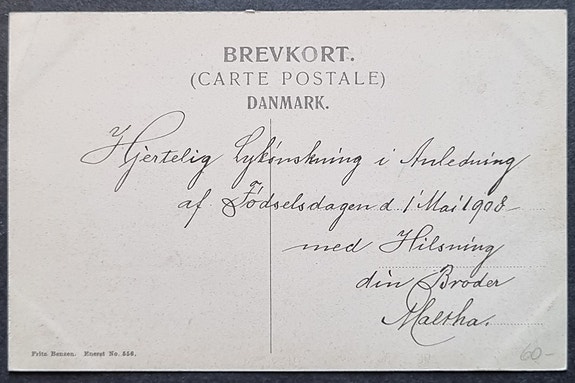 BREVKORT.
(CARTE POSTALE)
DANMARK.
Hjertelig Lykønskning i Anledning
af Fødselsdagen d. 1 Mai 1908
med Hilsning
din Broder
Maltha.
Fritz Benzen. Eneret No. 556.
60-